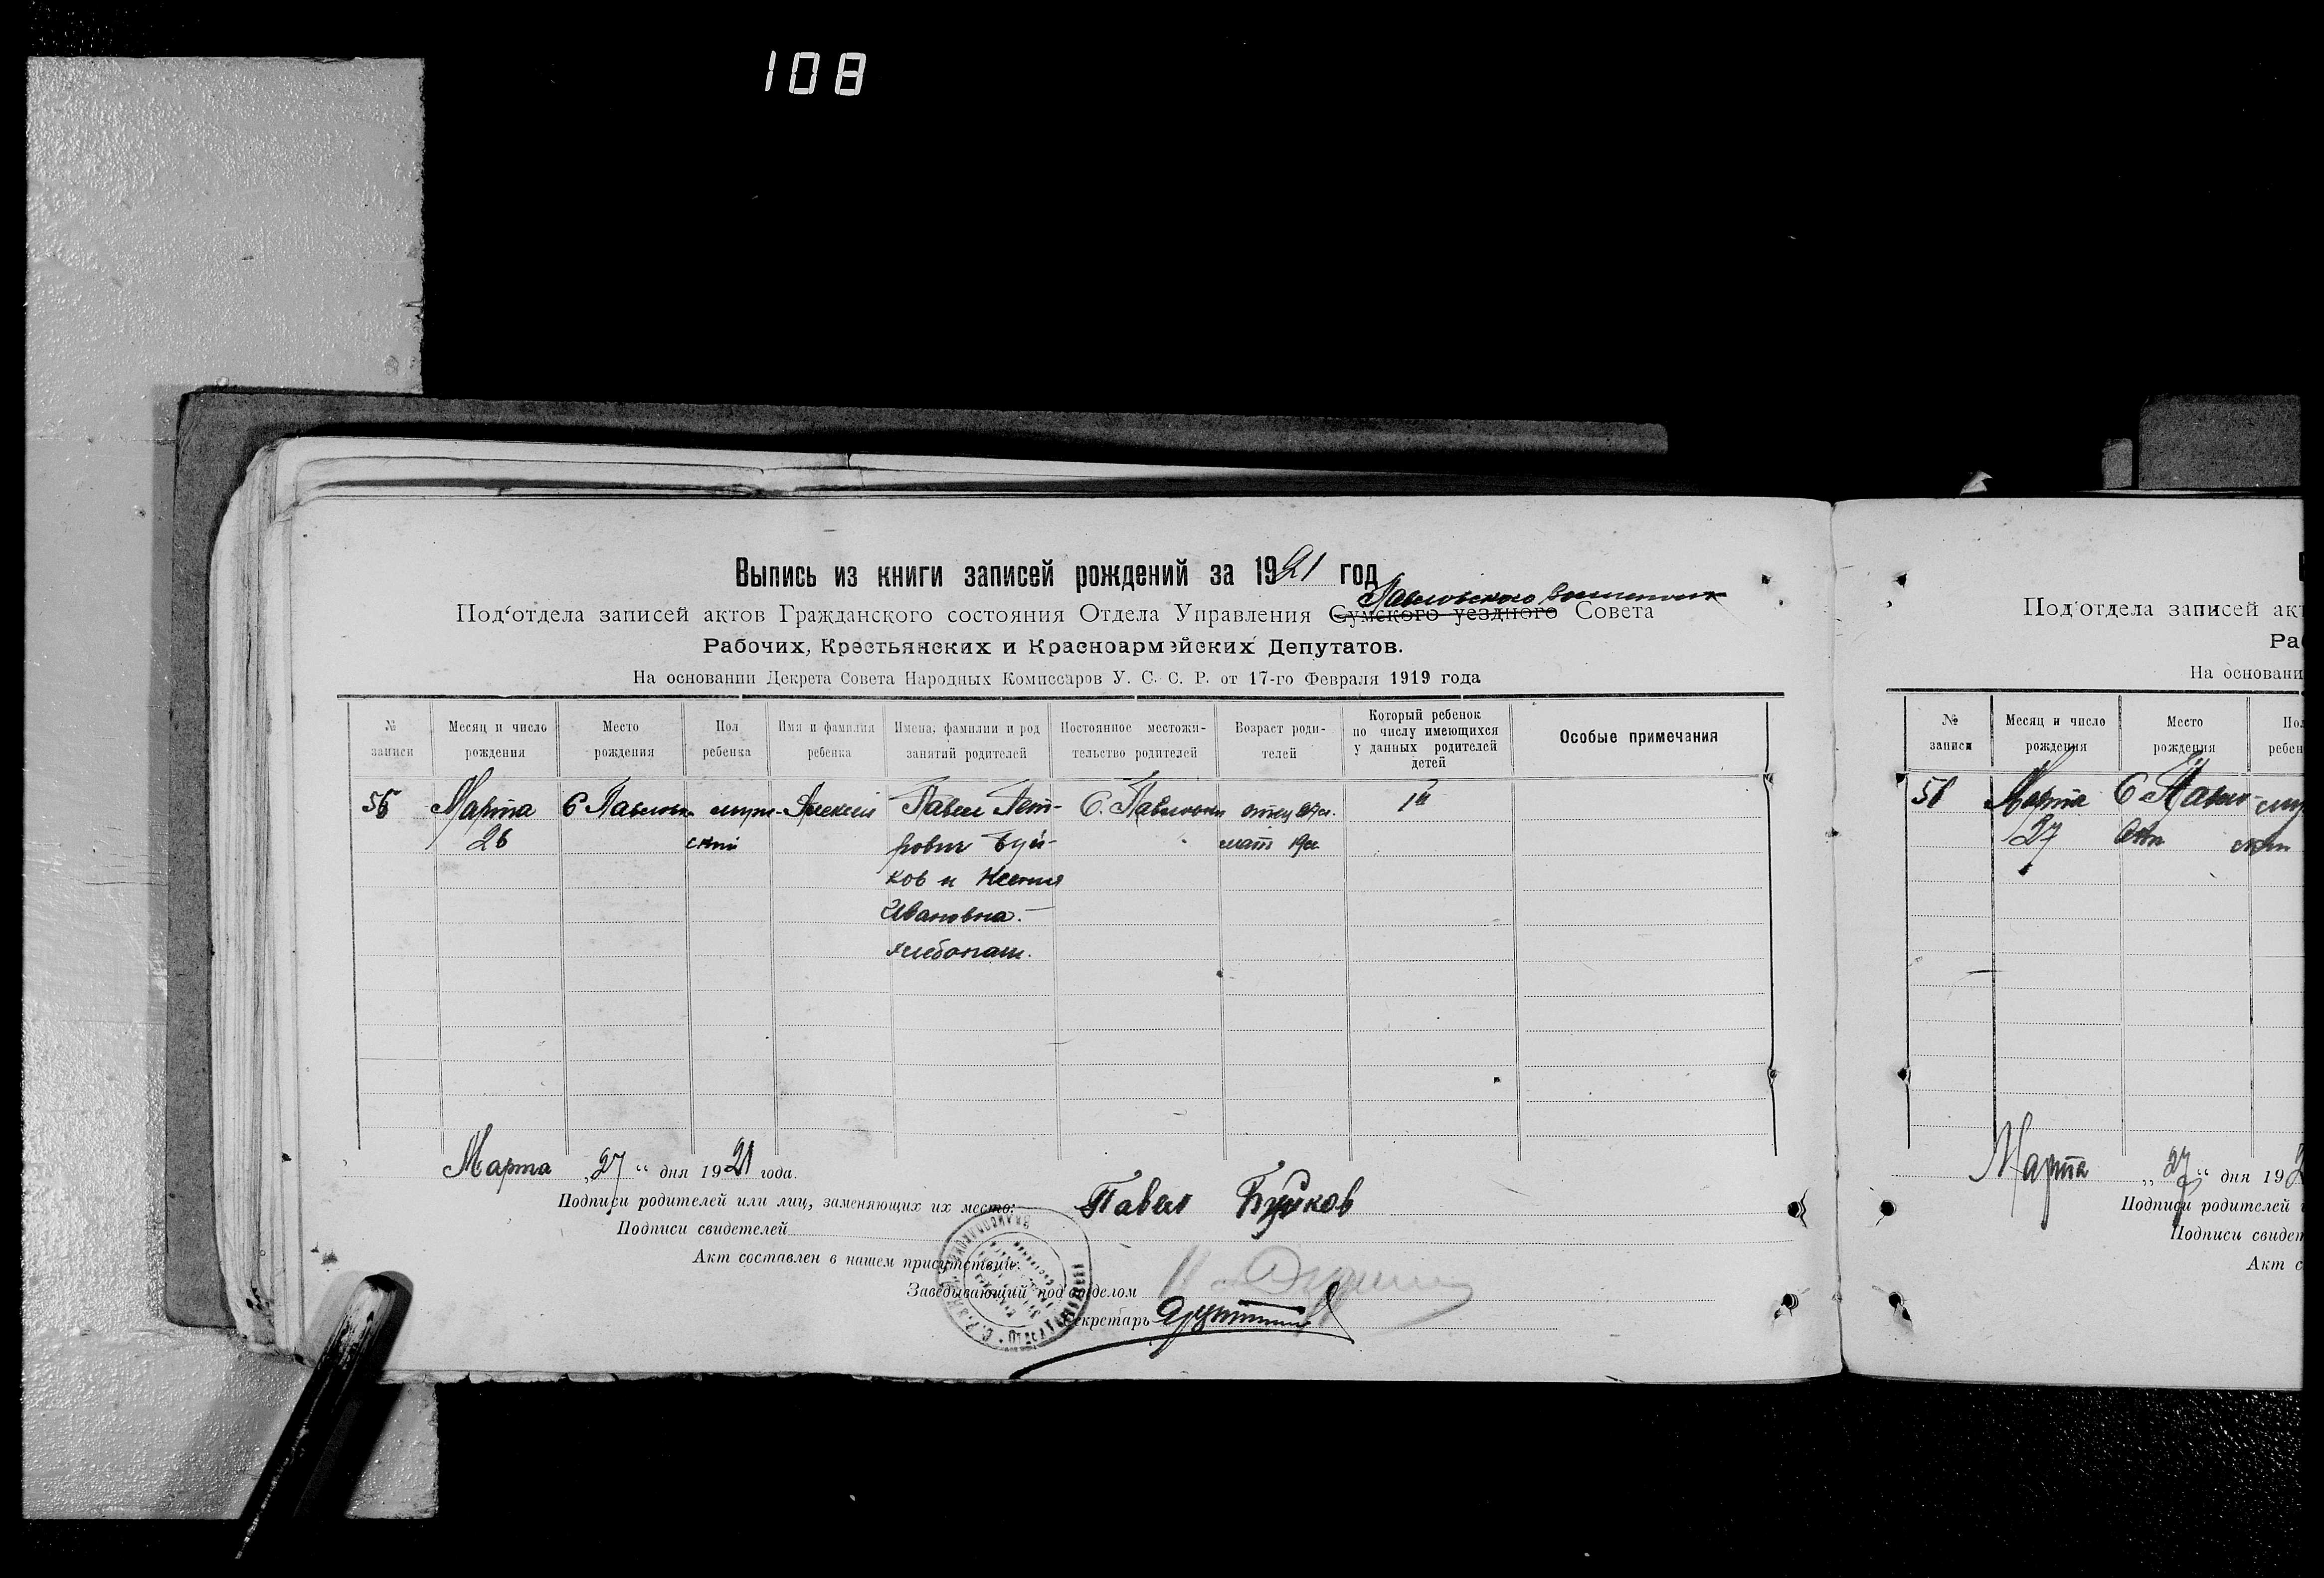 108
Выпись из книги записей рождений за 1921 год
Павловского
Под‘отдела записей актов Гражданского состояния Отдела Управления Сумского уездного Совета
Рабочих, Крестьянских и Красноармейских Депутатов.
На основании Декрета Совета Народных Комиссаров У. С. С. Р. от 17-го Февраля 1919 года
№ записи
Месяц и число рождения
Место рождения
Пол ребенка
Имя и фамилия ребенка
Имена, фамилии и род занятий родителей
Постоянное местожительство родителей
Возраст родителей
Который ребенок по числу имеющихся у данных родителей детей
Особые примечания
56 Марта С Павловк муж- Алексей Павел Пет- С. Павловки отец 1й
26 ский рович Буй- мать 19л
ков и Ксения
Ивановна.
хлебопаш.
Марта „27“ дня 1921 года.
Подписи родителей или лиц, заменяющих их место: Павел Буйков
Подписи свидетелей
Акт составлен в нашем присутствии:
Заведывающий под‘отделом
Секретарь
Под‘отдела записей ак
Ра
На основани
№ записи
Месяц и число рождения
Место рождения
Пол ребен
Марта С Павло- му
27
Марта „27“ дня 19
Подписи родителей
Подписи свидет
Акт с